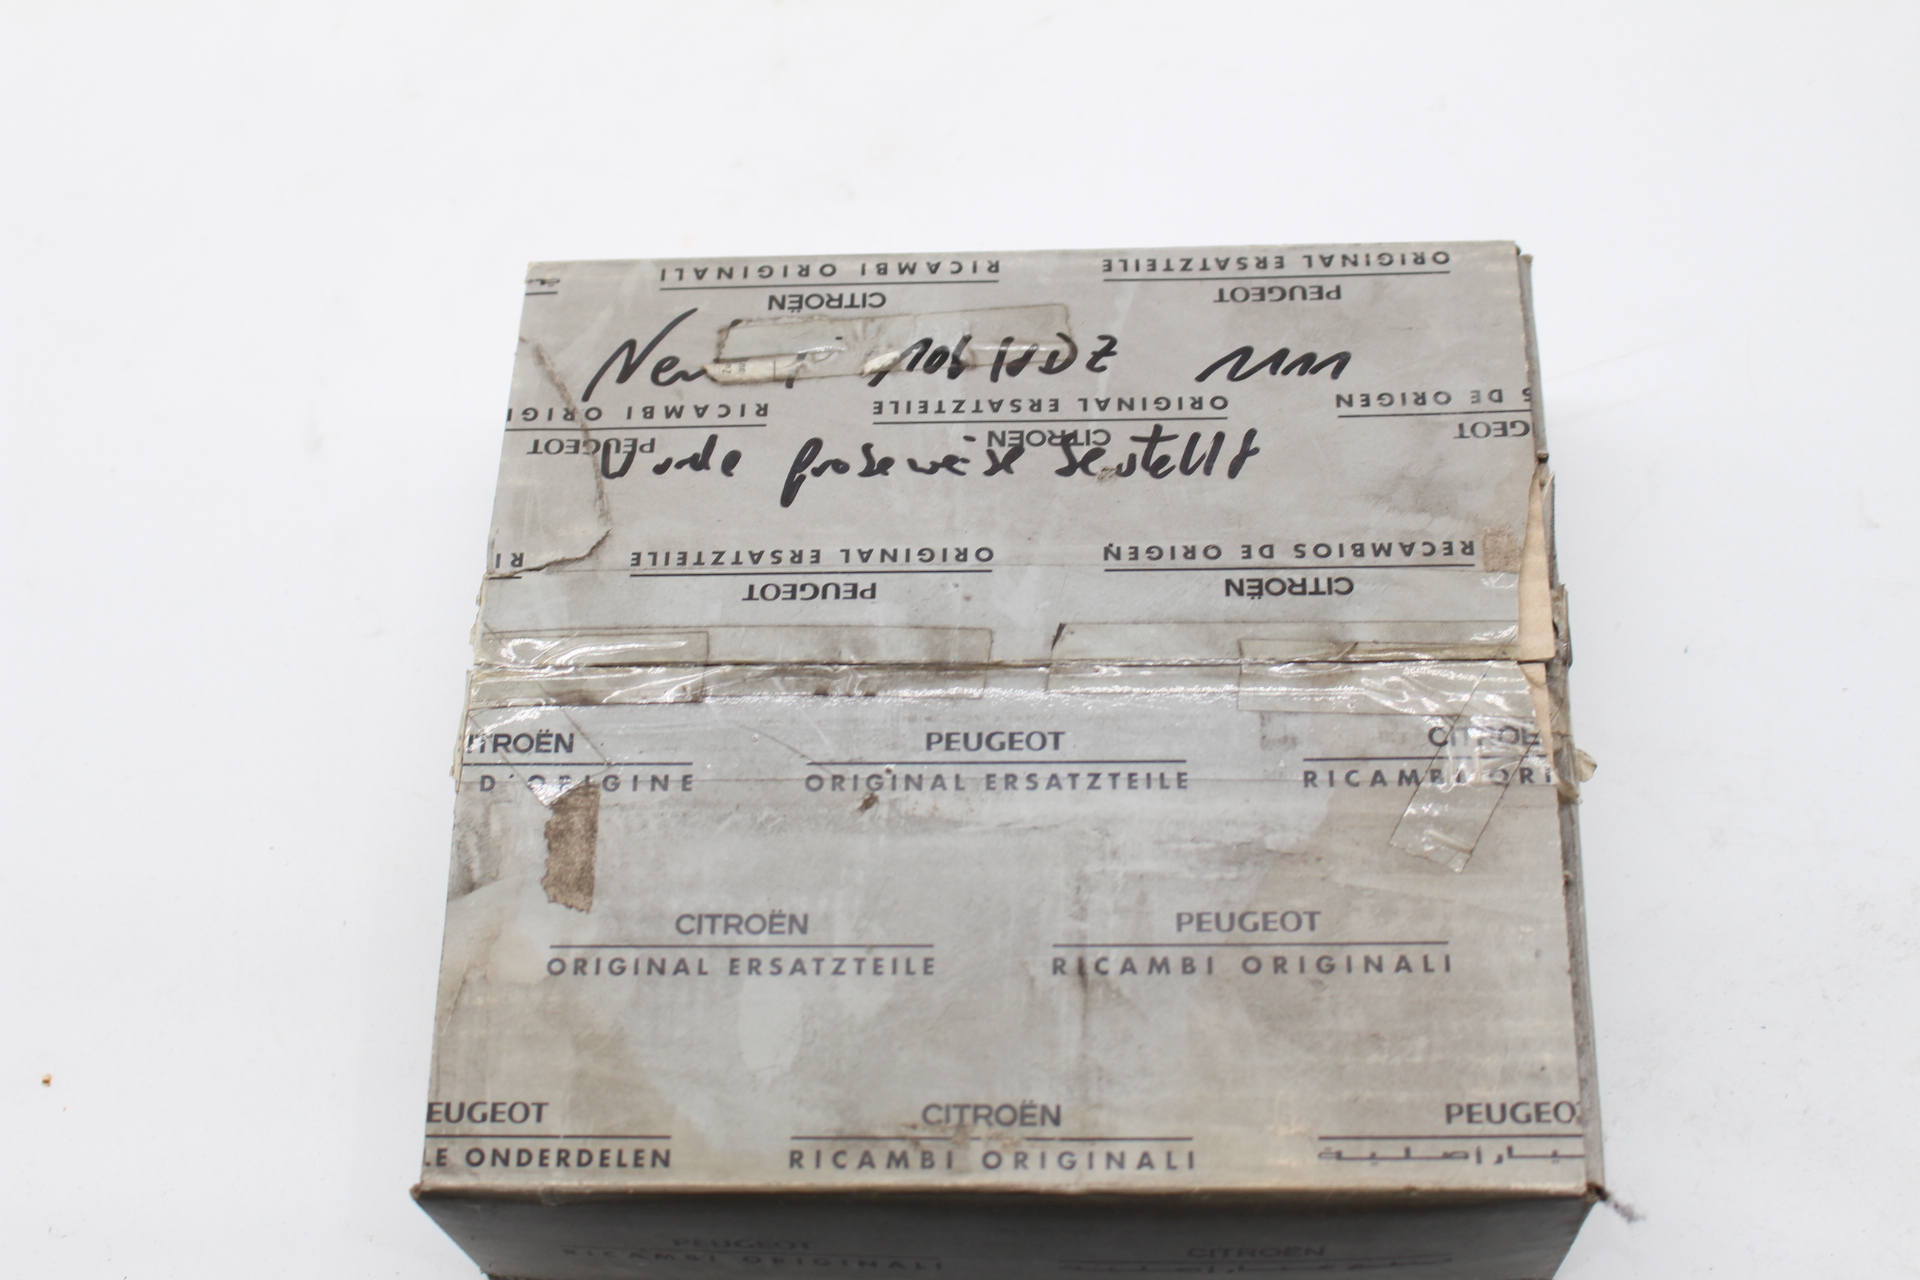 RICAMBI ORIGINALI ORIGINAL ERSATZTEILE
CITROËN PEUGEOT
106
RICAMBI ORIGI ORIGINAL ERSATZTEILE S DE ORIGEN
PEUGEOT CITROËN GEOT
Wurde probeweise bestellt
RI ORIGINAL ERSATZTEILE RECAMBIOS DE ORIGEN
PEUGEOT CITROËN
ITROËN PEUGEOT CITROË
D'ORIGINE ORIGINAL ERSATZTEILE RICAMBI ORI
CITROËN PEUGEOT
ORIGINAL ERSATZTEILE RICAMBI ORIGINALI
EUGEOT CITROËN PEUGEO
LE ONDERDELEN RICAMBI ORIGINALI
PEUGEOT CITROËN
RICAMBI ORIGINALI